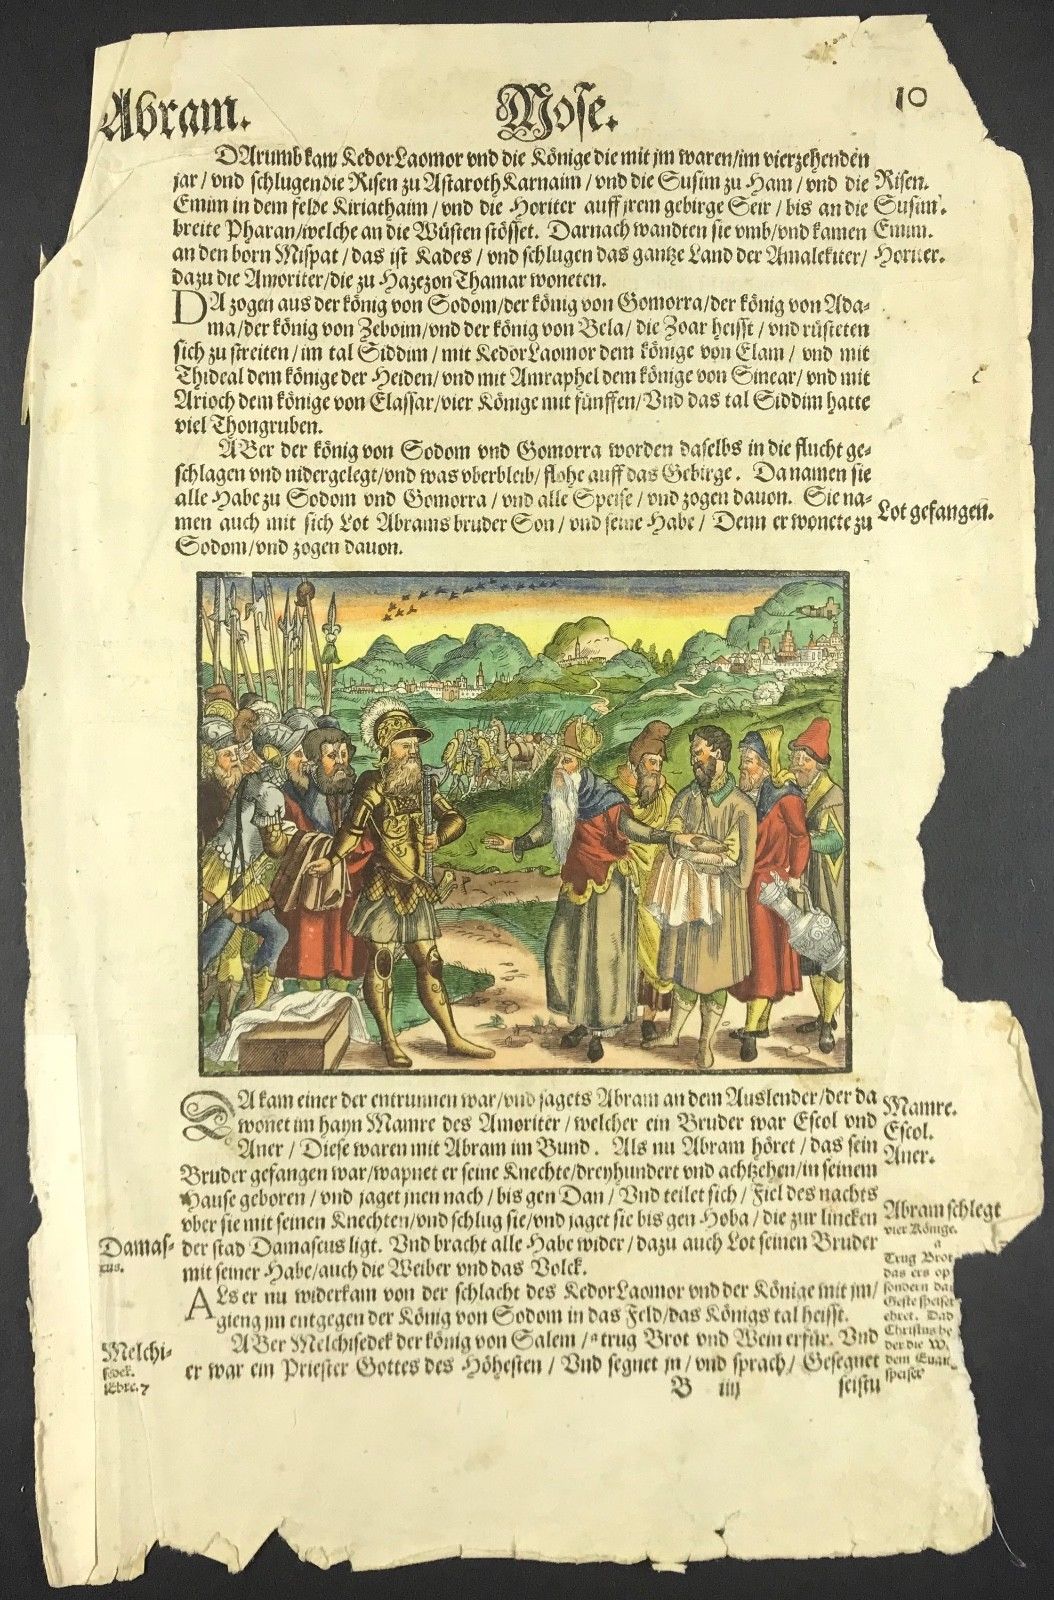 Abram. Mose. 10
DArumb kam KedorLaomor vnd die Könige die mit jm waren/im vierzehenden
jar / vnd schlugen die Risen zu Astaroth Karnaim / vnd die Susim zu Ham / vnd die Risen.
Emim in dem felde Kiriathaim / vnd die Horiter auff jrem gebirge Seir / bis an die Susim.
breite Pharan/welche an die Wüsten stösset. Darnach wandten sie vmb/vnd kamen Emim.
an den born Mispat / das ist Kades / vnd schlugen das gantze Land der Amalekiter/ Horiter.
dazu die Amoriter/die zu Hazezon Thamar woneten.
DA zogen aus der könig von Sodom/der könig von Gomorra/der könig von Ada-
ma/der könig von Zeboim/vnd der könig von Bela/ die Zoar heisst / vnd rüsteten
sich zu streiten/ im tal Siddim / mit KedorLaomor dem könige von Elam / vnd mit
Thideal dem könige der Heiden/ vnd mit Amraphel dem könige von Sinear/ vnd mit
Arioch dem könige von Elassar/vier Könige mit fünffen/ Vnd das tal Siddim hatte
viel Thongruben.
ABer der könig von Sodom vnd Gomorra worden daselbs in die flucht ge-
schlagen vnd nidergelegt/vnd was vberbleib/ flohe auff das Gebirge. Da namen sie
alle Habe zu Sodom vnd Gomorra / vnd alle Speise / vnd zogen dauon. Sie na-
men auch mit sich Lot Abrams bruder Son / vnd seine Habe / Denn er wonete zu Lot gefangen.
Sodom/vnd zogen dauon.
DA kam einer der entrunnen war/vnd sagets Abram an dem Auslender/der da Mamre.
wonet im hayn Mamre des Amoriter / welcher ein Bruder war Escol vnd Escol.
Aner / Diese waren mit Abram im Bund. Als nu Abram höret / das sein Aner.
Bruder gefangen war/wapnet er seine Knechte/dreyhundert vnd achtzehen/in seinem
Hause geboren / vnd jaget jnen nach / bis gen Dan / Vnd teilet sich / Fiel des nachts Abram schlegt
vber sie mit seinen Knechten/vnd schlug sie/vnd jaget sie bis gen Hoba / die zur lincken vier Könige.
Damas- der stad Damascus ligt. Vnd bracht alle Habe wider / dazu auch Lot seinen Bruder
cus. mit seiner Habe/auch die Weiber vnd das Volck.
ALs er nu widerkam von der schlacht des KedorLaomor vnd der Könige mit jm/
gieng jm entgegen der König von Sodom in das Feld/das Königs tal heisst.
ABer Melchisedek der könig von Salem / a trug Brot vnd Wein erfür. Vnd
Melchi- er war ein Priester Gottes des Höhesten / Vnd segnet jn / vnd sprach / Gesegnet
sedek.
Ebre. 7
a
Trug Brot
das ers op
sondern das
Geste speiset
ehret. Dad
Christus be
der die W.
dem Euan
speiset
B iiij seistu